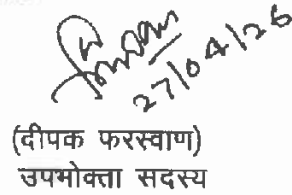 27/04/26
(दीपक फरस्वाण)
उपभोक्ता सदस्य